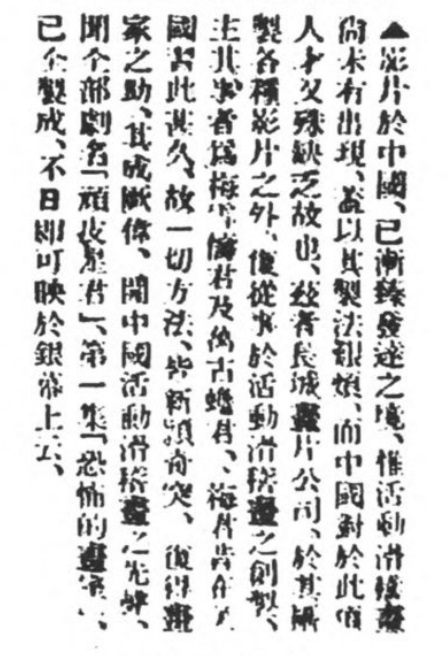 ▲影片於中國、已漸臻發達之境、惟活動滑稽畫
尚未有出現、蓋以其製法艱煩、而中國對於此項
人才又殊缺乏故也、茲者長城畫片公司、於其攝
製各種影片之外、復從事於活動滑稽畫之創製、
主其事者為梅雪儔君及萬古蟾君、梅君昔在
國習此甚久、故一切方法、皆新穎奇突、復得畫
家之助、其成績偉、開中國活動滑稽畫之先聲、
聞全部劇名「頑皮星君」、第一集「恐怖的畫室」、
已全製成、不日即可映於銀幕上云、